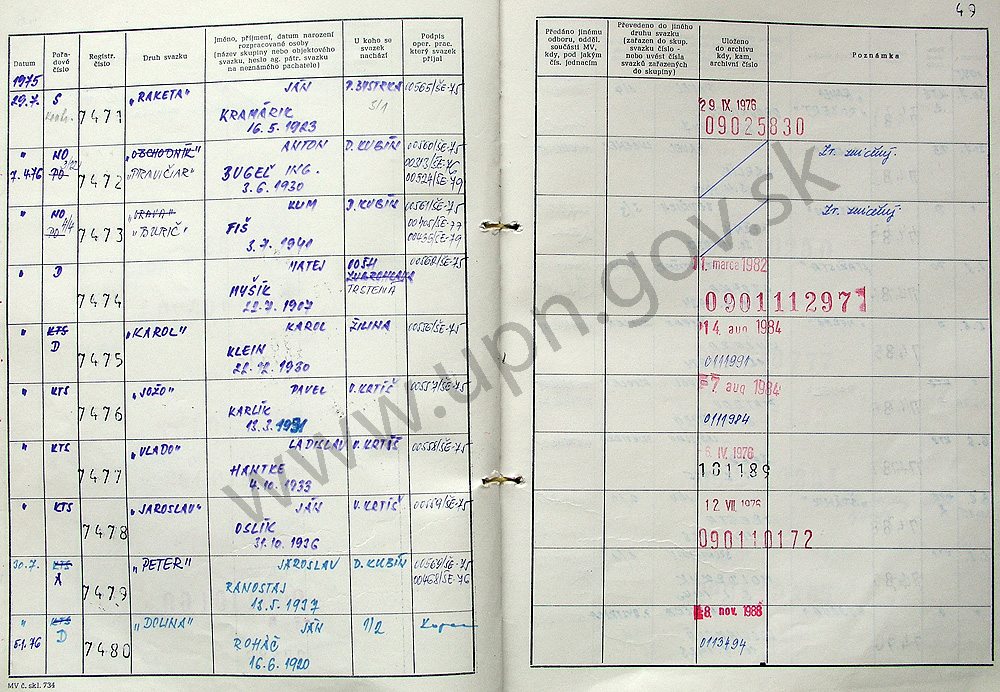 47
Datum
Pořa-
dové
číslo
Registr.
číslo
Druh svazku
Jméno, příjmení, datum narození
rozpracované osoby
(název skupiny nebo objektového
svazku, heslo ag. pátr. svazku
na neznámého pachatele)
U koho se
svazek
nachází
Podpis
oper. prac.
který svazek
přijal
Předáno jinému
odboru, odděl.
součásti MV,
kdy, pod jakým
čís. jednacím
Převedeno do jiného
druhu svazku
(zařazen do skup.
svazku číslo -
nebo uvést čísla
svazků zařazených
do skupiny)
Uloženo
do archívu
kdy, kam,
archivní číslo
Poznámka
1975
29.7. S 7471 „RAKETA" JÁN B.BYSTRICA 00565/ŠE-75
KRAMÁRIK S/1
16.5.1923
29 IX. 1976
09025830
" NO 7472 „OBCHODNÍK" ANTON D. KUBÍN 00560/ŠE-75
7.4.76 PO „PRAVIČIAR" BUGEĽ ING. 00313/ŠE-76
3.6.1930 00524/ŠE-79
" NO 7473 „ORAVA" KLIM D. KUBÍN 00561/ŠE-75
PO „BURIČ" FIŠ
3.7.1941 00435/ŠE-79
" D 7474 MATEJ OOŠH 00562/ŠE-75
MYŠÍK TRSTENÁ
22.7.1907
1. marca 1982
0901112971
" KTS 7475 „KAROL" KAROL ŽILINA 00556/ŠE-75
D KLEIN
22.12.1930
14 aug 1984
0111991
" KTS 7476 „JOŽO" PAVEL V. KRTÍŠ 00557/ŠE-75
KARLÍK
13.3.1931
7 aug 1984
0111984
" KTS 7477 „VLADO" LADISLAV V. KRTÍŠ 00558/ŠE-75
HANTKE
4.10.1933
6 IV. 1976
101189
" KTS 7478 „JAROSLAV" JÁN V. KRTÍŠ 00559/ŠE-75
OSLÍK
31.10.1936
12 VII. 1976
090110172
30.7. KTS 7479 „PETER" JAROSLAV D. KUBÍN 00564/ŠE-75
A RANOSTAJ 00468/ŠE-76
13.5.1937
" KTS 7480 „DOLINA" JÁN 1/2
5.1.76 D ROHÁČ
16.6.1920
8. nov. 1988
0113494
MV č. skl. 734
www.upn.gov.sk